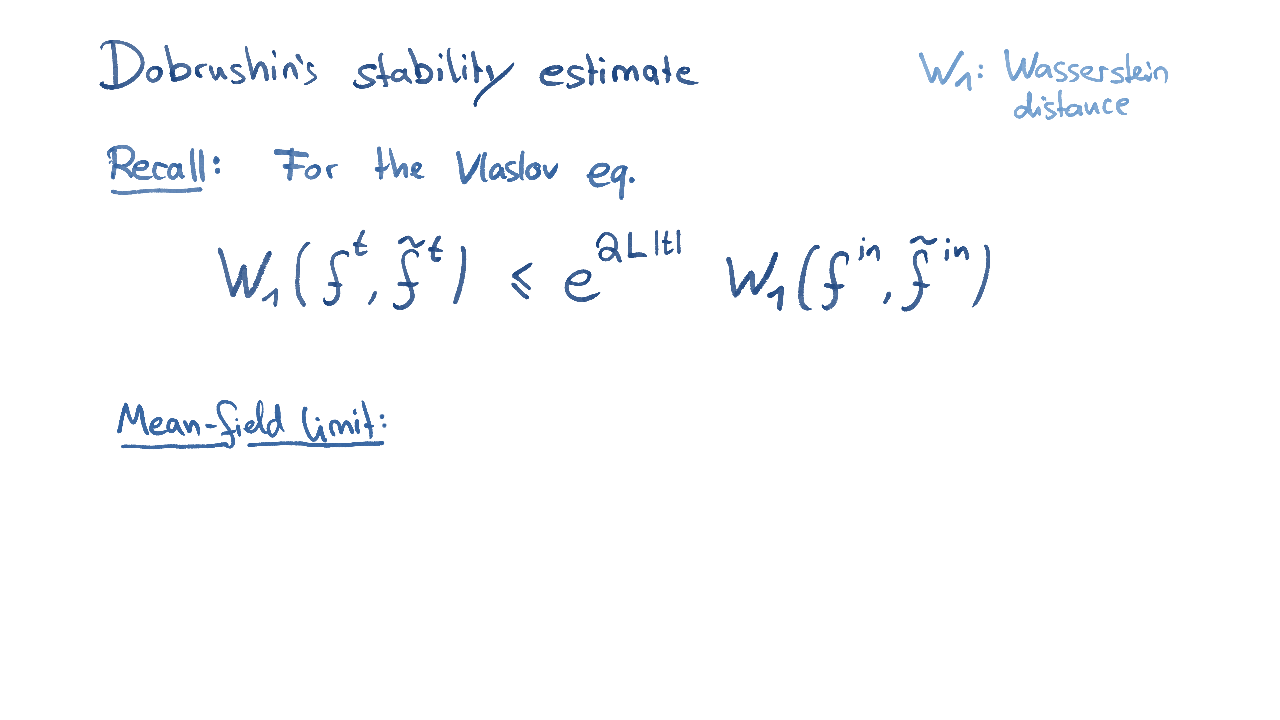 Dobrushin's stability estimate
W₁: Wasserstein
distance
Recall: For the Vlaslov eq.
W₁(fᵗ, f̃ᵗ) ⩽ e^{2L|t|} W₁(f^{in}, f̃^{in})
Mean-field limit: